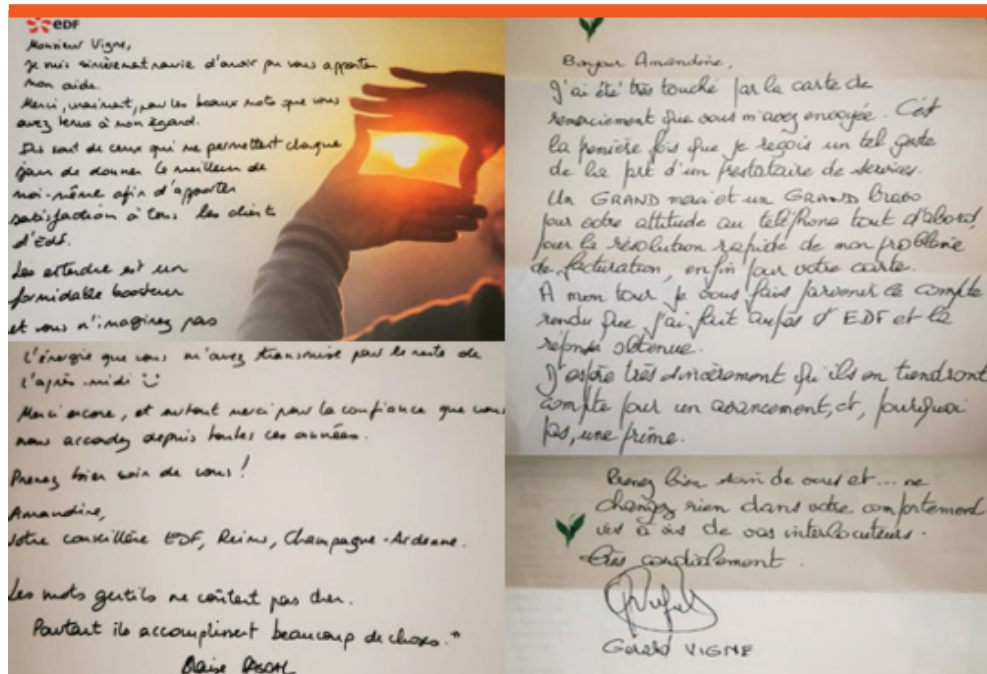 eDF
Monsieur Vigne,
Je suis sincèrement ravie d'avoir pu vous apporter
mon aide.
Merci, vraiment, pour les beaux mots que vous
avez tenus à mon égard.
Ils sont de ceux qui me permettent chaque
jour de donner le meilleur de
moi-même afin d'apporter
satisfaction à tous les clients
d'EDF.
Les entendre est un
formidable booster
et vous n'imaginez pas
l'énergie que vous m'avez transmise pour le reste de
l'après-midi
Merci encore, et surtout merci pour la confiance que vous
nous accordez depuis toutes ces années.
Prenez bien soin de vous !
Amandine,
Votre conseillère EDF, Reims, Champagne-Ardenne.
Les mots gentils ne coûtent pas cher.
Pourtant ils accomplissent beaucoup de choses."
Blaise PASCAL
Bonjour Amandine,
J'ai été très touché par la carte de
remerciement que vous m'avez envoyée. C'est
la première fois que je reçois un tel geste
de la part d'un prestataire de services.
Un GRAND merci et un GRAND bravo
pour votre attitude au téléphone tout d'abord,
pour la résolution rapide de mon problème
de facturation, enfin pour votre carte.
A mon tour je vous fais parvenir le compte
rendu que j'ai fait auprès d'EDF et la
réponse obtenue.
J'espère très sincèrement qu'ils en tiendront
compte pour un avancement, et, pourquoi
pas, une prime.
Prenez bien soin de vous et... ne
changez rien dans votre comportement
vis à vis de vos interlocuteurs.
Très cordialement.
Gérald VIGNE